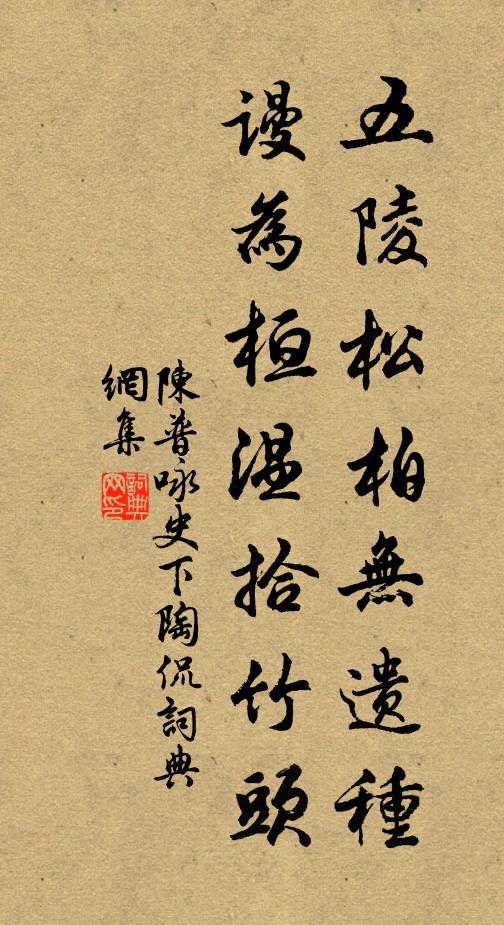 五陵松柏無遺種
謾為桓温拾竹頭
陳普咏史下陶侃詞典
網集
詞典網印